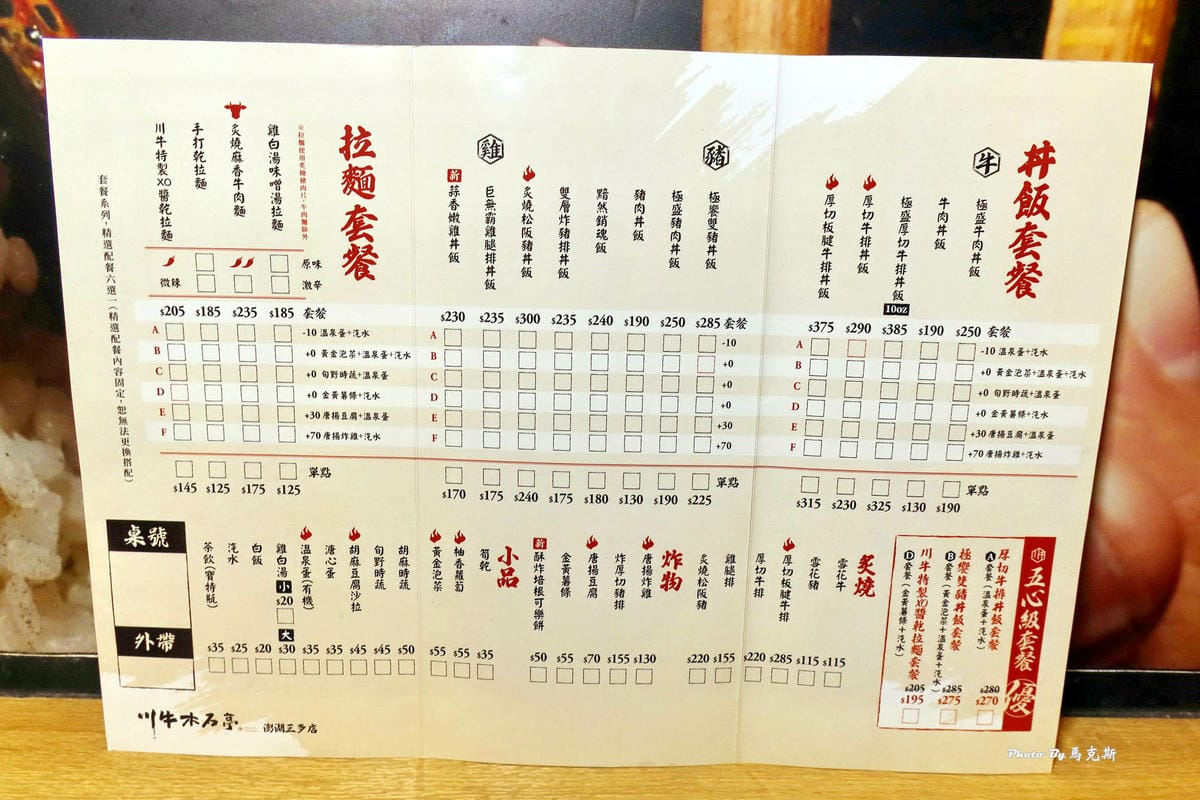 丼飯套餐
牛
極盛牛肉丼飯
牛肉丼飯
極盛厚切牛排丼飯 10oz
厚切牛排丼飯
厚切板腱牛排丼飯
豬
極饗雙豬丼飯
極盛豬肉丼飯
豬肉丼飯
黯然銷魂飯
雙層炸豬排丼飯
炙燒松阪豬丼飯
雞
巨無霸雞腿排丼飯
新 蒜香嫩雞丼飯
$375 $290 $385 $190 $250 套餐
A -10 溫泉蛋+汽水
B +0 黃金泡菜+溫泉蛋+汽水
C +0 旬野時蔬+溫泉蛋
D +0 金黃薯條+汽水
E +30 唐揚豆腐+溫泉蛋
F +70 唐揚炸雞+汽水
單點
$315 $230 $325 $130 $190
$230 $235 $300 $235 $240 $190 $250 $285 套餐
A -10
B +0
C +0
D +0
E +30
F +70
單點
$170 $175 $240 $175 $180 $130 $190 $225
拉麵套餐
※拉麵使用炙燒豬肉片,牛肉麵除外
雞白湯味噌湯拉麵
炙燒麻香牛肉麵
手打乾拉麵
川牛特製XO醬乾拉麵
原味
激辛
微辣
$205 $185 $235 $185 套餐
A -10 溫泉蛋+汽水
B +0 黃金泡菜+溫泉蛋+汽水
C +0 旬野時蔬+溫泉蛋
D +0 金黃薯條+汽水
E +30 唐揚豆腐+溫泉蛋
F +70 唐揚炸雞+汽水
單點
$145 $125 $175 $125
套餐系列,精選配餐六選一(精選配餐內容固定,恕無法更換搭配)
五心級套餐 優
A 厚切牛排丼飯套餐
A套餐(溫泉蛋+汽水)
$280
$270
B 極饗雙豬丼飯套餐
B套餐(黃金泡菜+溫泉蛋+汽水)
$285
$275
D 川牛特製XO醬乾拉麵套餐
D套餐(金黃薯條+汽水)
$205
$195
炙燒
雪花牛 $115
雪花豬 $115
厚切板腱牛排 $285
厚切牛排 $220
雞腿排 $155
炙燒松阪豬 $220
炸物
唐揚炸雞 $130
炸厚切豬排 $155
唐揚豆腐 $70
金黃薯條 $55
新 酥炸培根可樂餅 $50
小品
筍乾 $35
柚香蘿蔔 $55
黃金泡菜 $55
胡麻時蔬 $50
旬野時蔬 $45
胡麻豆腐沙拉 $45
溏心蛋 $35
溫泉蛋(有機) $35
雞白湯 小 $20 大 $30
白飯 $20
汽水 $25
茶飲(寶特瓶) $35
桌號
外帶
川牛木石亭 澎湖三多店
Photo By 馬克斯